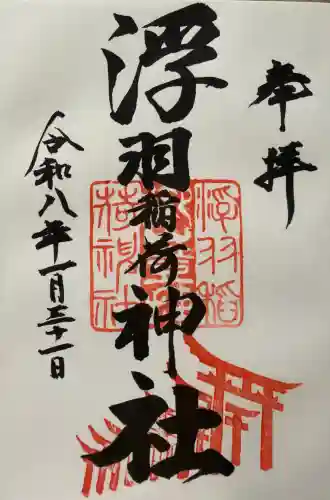 奉拝
浮羽稲荷神社
令和八年一月三十一日
浮羽稲
荷神社